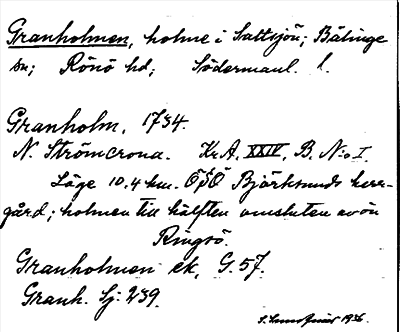 Granholmen, holme i Saltsjön; Bälinge
sn; Rönö hd; Södermanl. l.
Granholm, 1734.
N. Strömcrona. Kr.A. XXIV, B. N:o I.
Läge 10.4 km. ÖSÖ Björksunds herr-
gård; holmen till hälften omsluten av ön
Ringsö.
Granholmen ek, G. 57.
Granh. Sj: 239.
1936